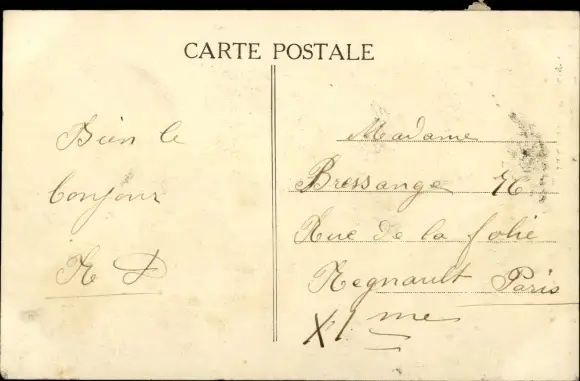 CARTE POSTALE
Bien le
bonjour
Madame
Bressange
Rue de la folie
Regnault Paris
XI me